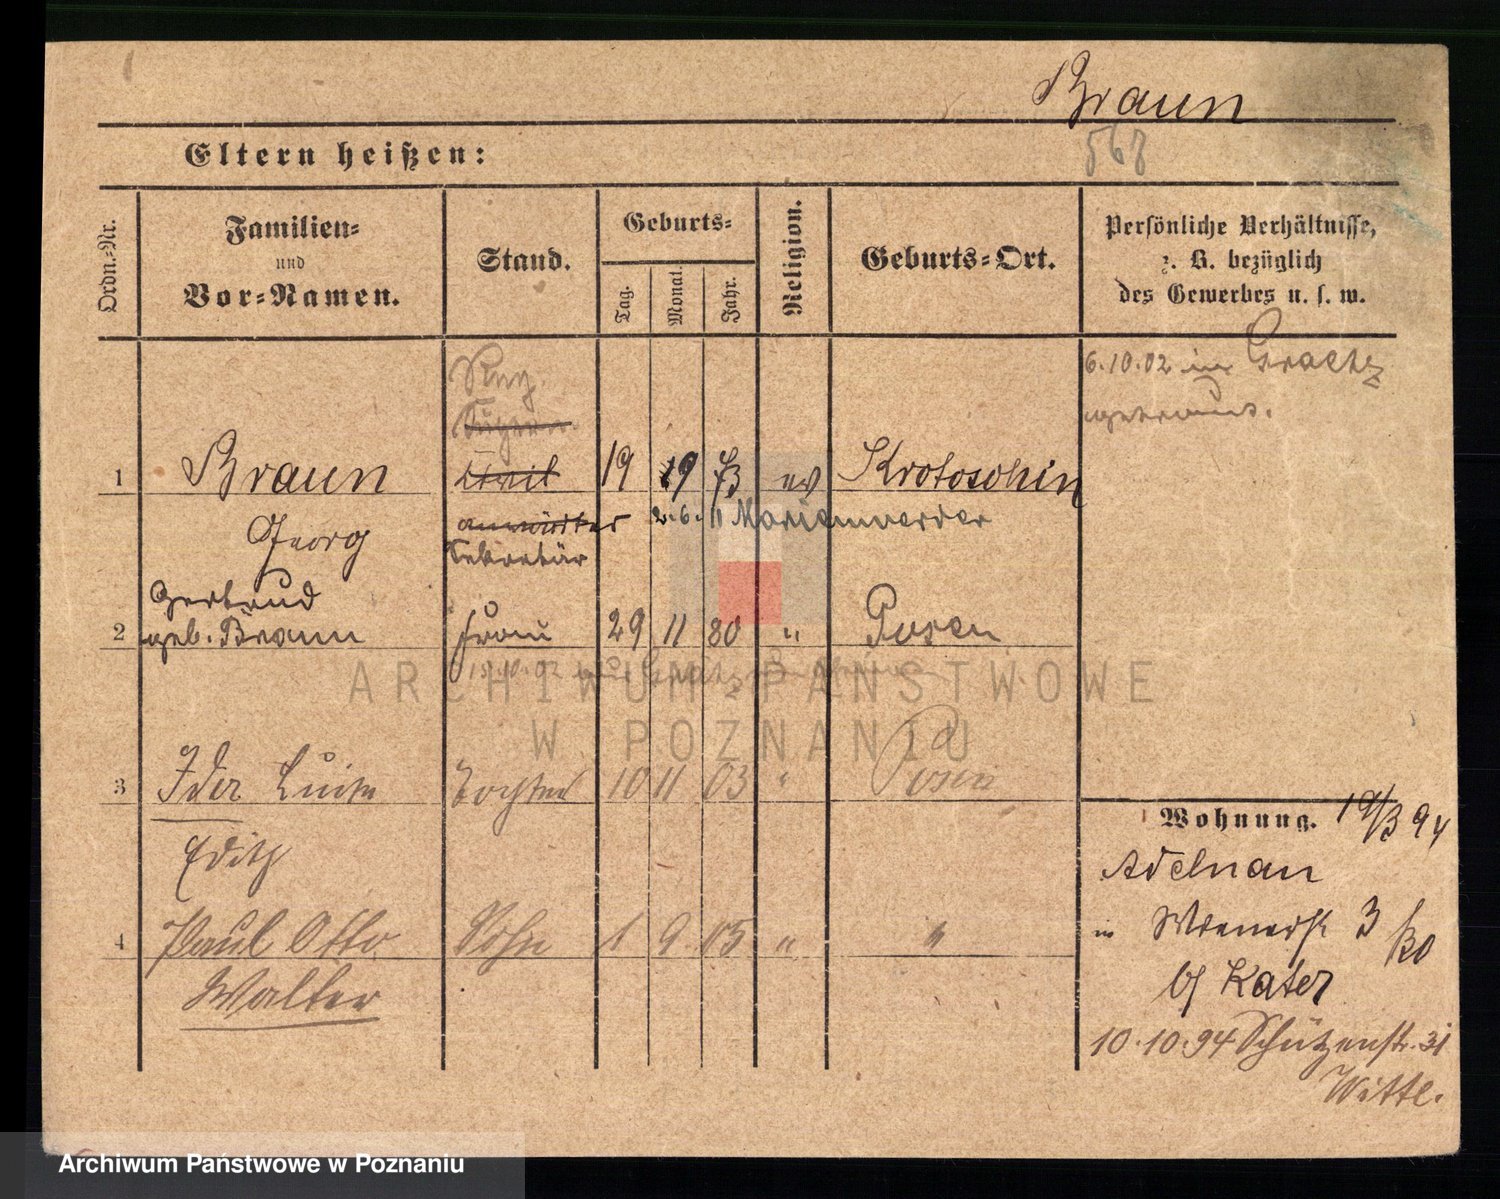 Braun
568
Eltern heißen:
Ordn.-Nr.
Familien-
und
Vor-Namen.
Stand.
Geburts-
Tag.
Monat.
Jahr.
Religion.
Geburts-Ort.
Persönliche Verhältnisse,
z. B. bezüglich
des Gewerbes u. s. w.
6.10.02 in Graetz
getraut.
Reg.
1 Braun Civil 19 9 73 ev Krotoschin
Georg anwärter 2.6. " Marienwerder
Sekretär
Gertrud
2 geb. Braun Frau 29 11 80 " Posen
ARCHIWUM PAŃSTWOWE
W POZNANIU
3 Ida Luise Tochter 10 11 03 " Posen
Edith
4 Paul Otto Sohn 1 9 05 " "
Walter
Wohnung. 19/3 94
Adelnau
in Wienerstr 3
b/ Kater
10.10.94 Schützenstr. 31
Witte.
Archiwum Państwowe w Poznaniu